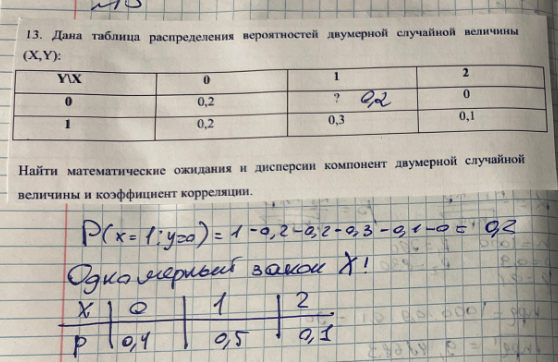 13. Дана таблица распределения вероятностей двумерной случайной величины
(X,Y):
Y\X 0 1 2
0 0,2 ? 0,2 0
1 0,2 0,3 0,1
Найти математические ожидания и дисперсии компонент двумерной случайной
величины и коэффициент корреляции.
P(x=1; y=0) = 1-0,2-0,2-0,3-0,1-0 = 0,2
Одномерный закон X!
X 0 1 2
P 0,4 0,5 0,1